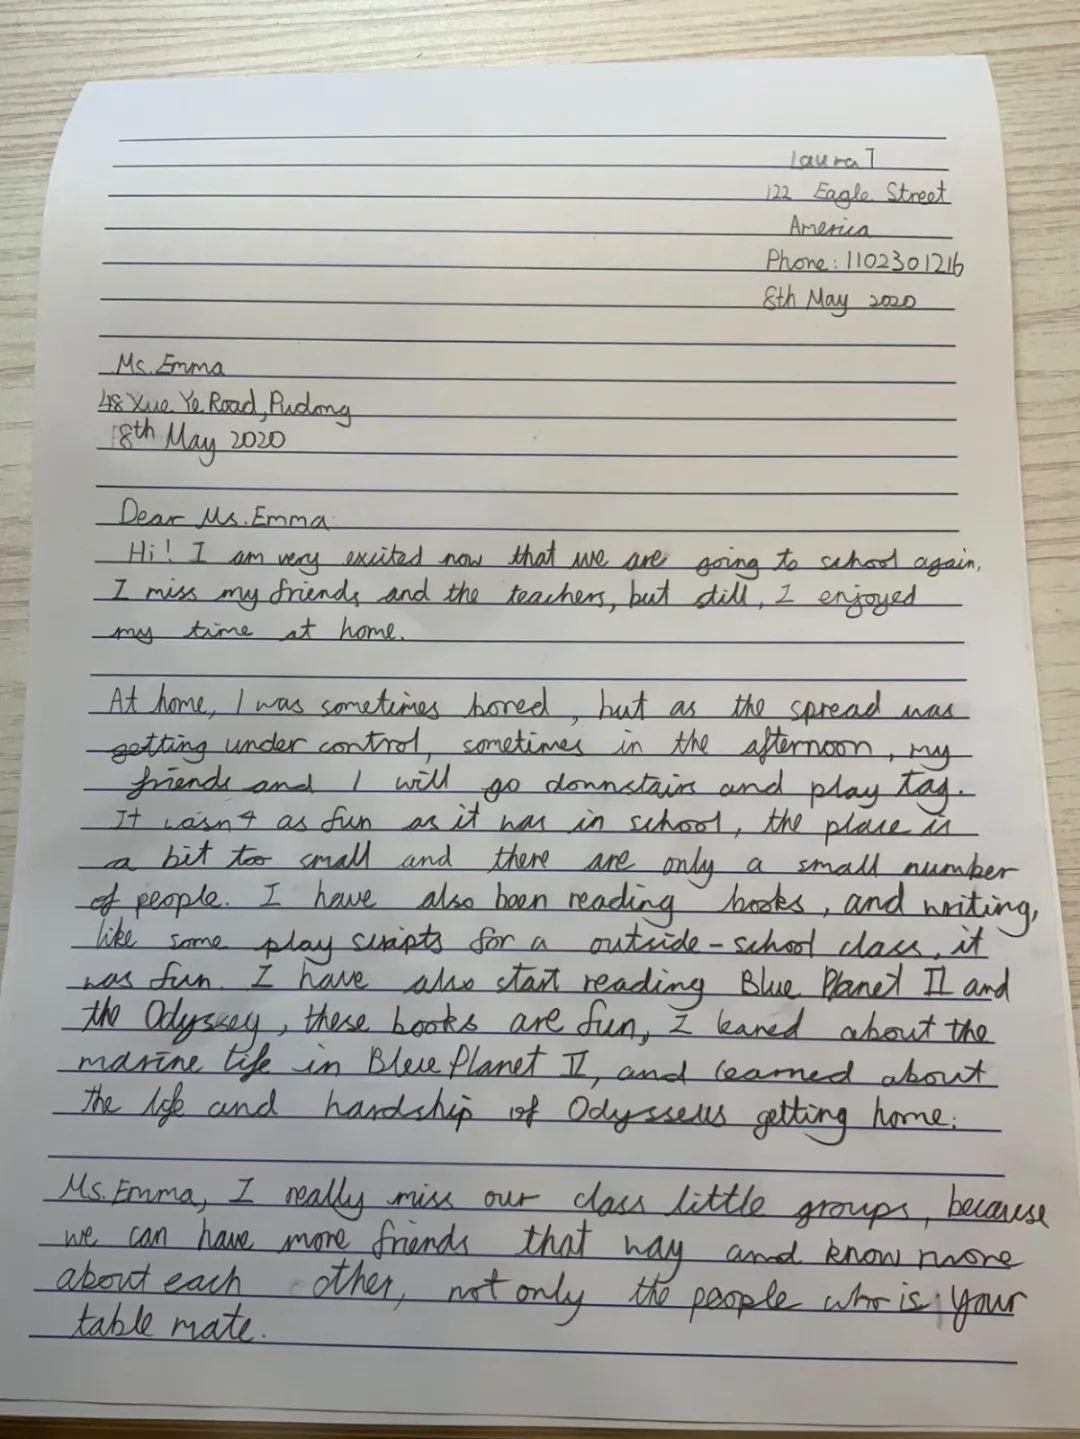 Laura T
122 Eagle Street
America
Phone: 1102301216
8th May 2020
Ms. Emma
48 Xue Ye Road, Pudong
18th May 2020
Dear Ms. Emma:
Hi! I am very excited now that we are going to school again,
I miss my friends and the teachers, but still, I enjoyed
my time at home.
At home, I was sometimes bored, but as the spread was
getting under control, sometimes in the afternoon, my
friends and I will go downstairs and play tag.
It wasn't as fun as it was in school, the place is
a bit too small and there are only a small number
of people. I have also been reading books, and writing,
like some play scripts for a outside-school class, it
was fun. I have also start reading Blue Planet II and
the Odyssey, these books are fun, I leaned about the
marine life in Blue Planet II, and learned about
the life and hardship of Odysseus getting home.
Ms. Emma, I really miss our class little groups, because
we can have more friends that way and know more
about each other, not only the people who is your
table mate.